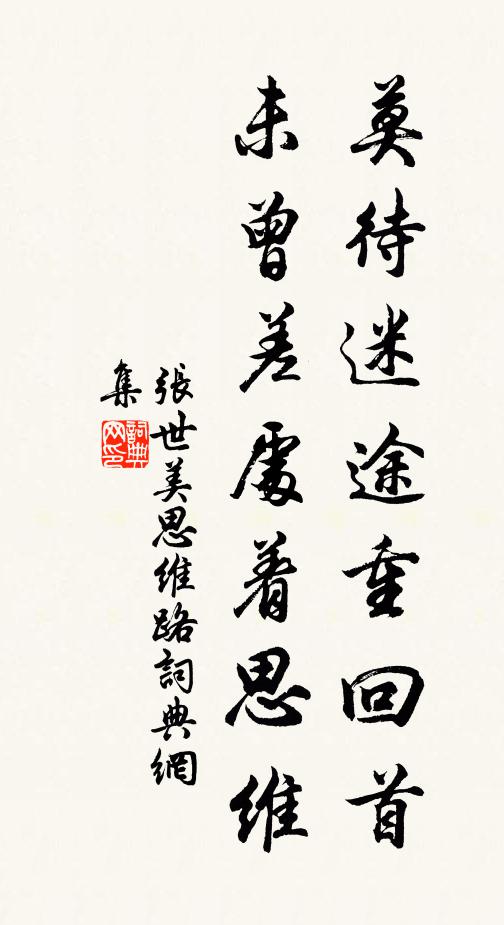 莫待迷途重回首
未曾差處着思維
張世美思維路詞典網
集
詞典
网印